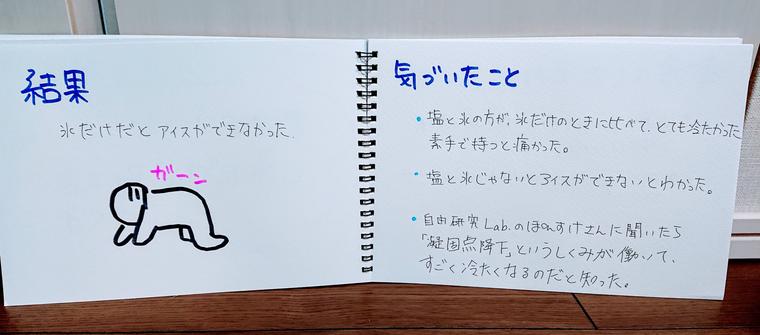 結果
氷だけだとアイスができなかった.
ガーン
気づいたこと
・塩と氷の方が、氷だけのときに比べて、とても冷たかった
素手で持つと痛かった。
・塩と氷じゃないとアイスができないとわかった。
・自由研究Lab.のほのすけさんに聞いたら
「凝固点降下」というしくみが働いて、
すごく冷たくなるのだと知った。